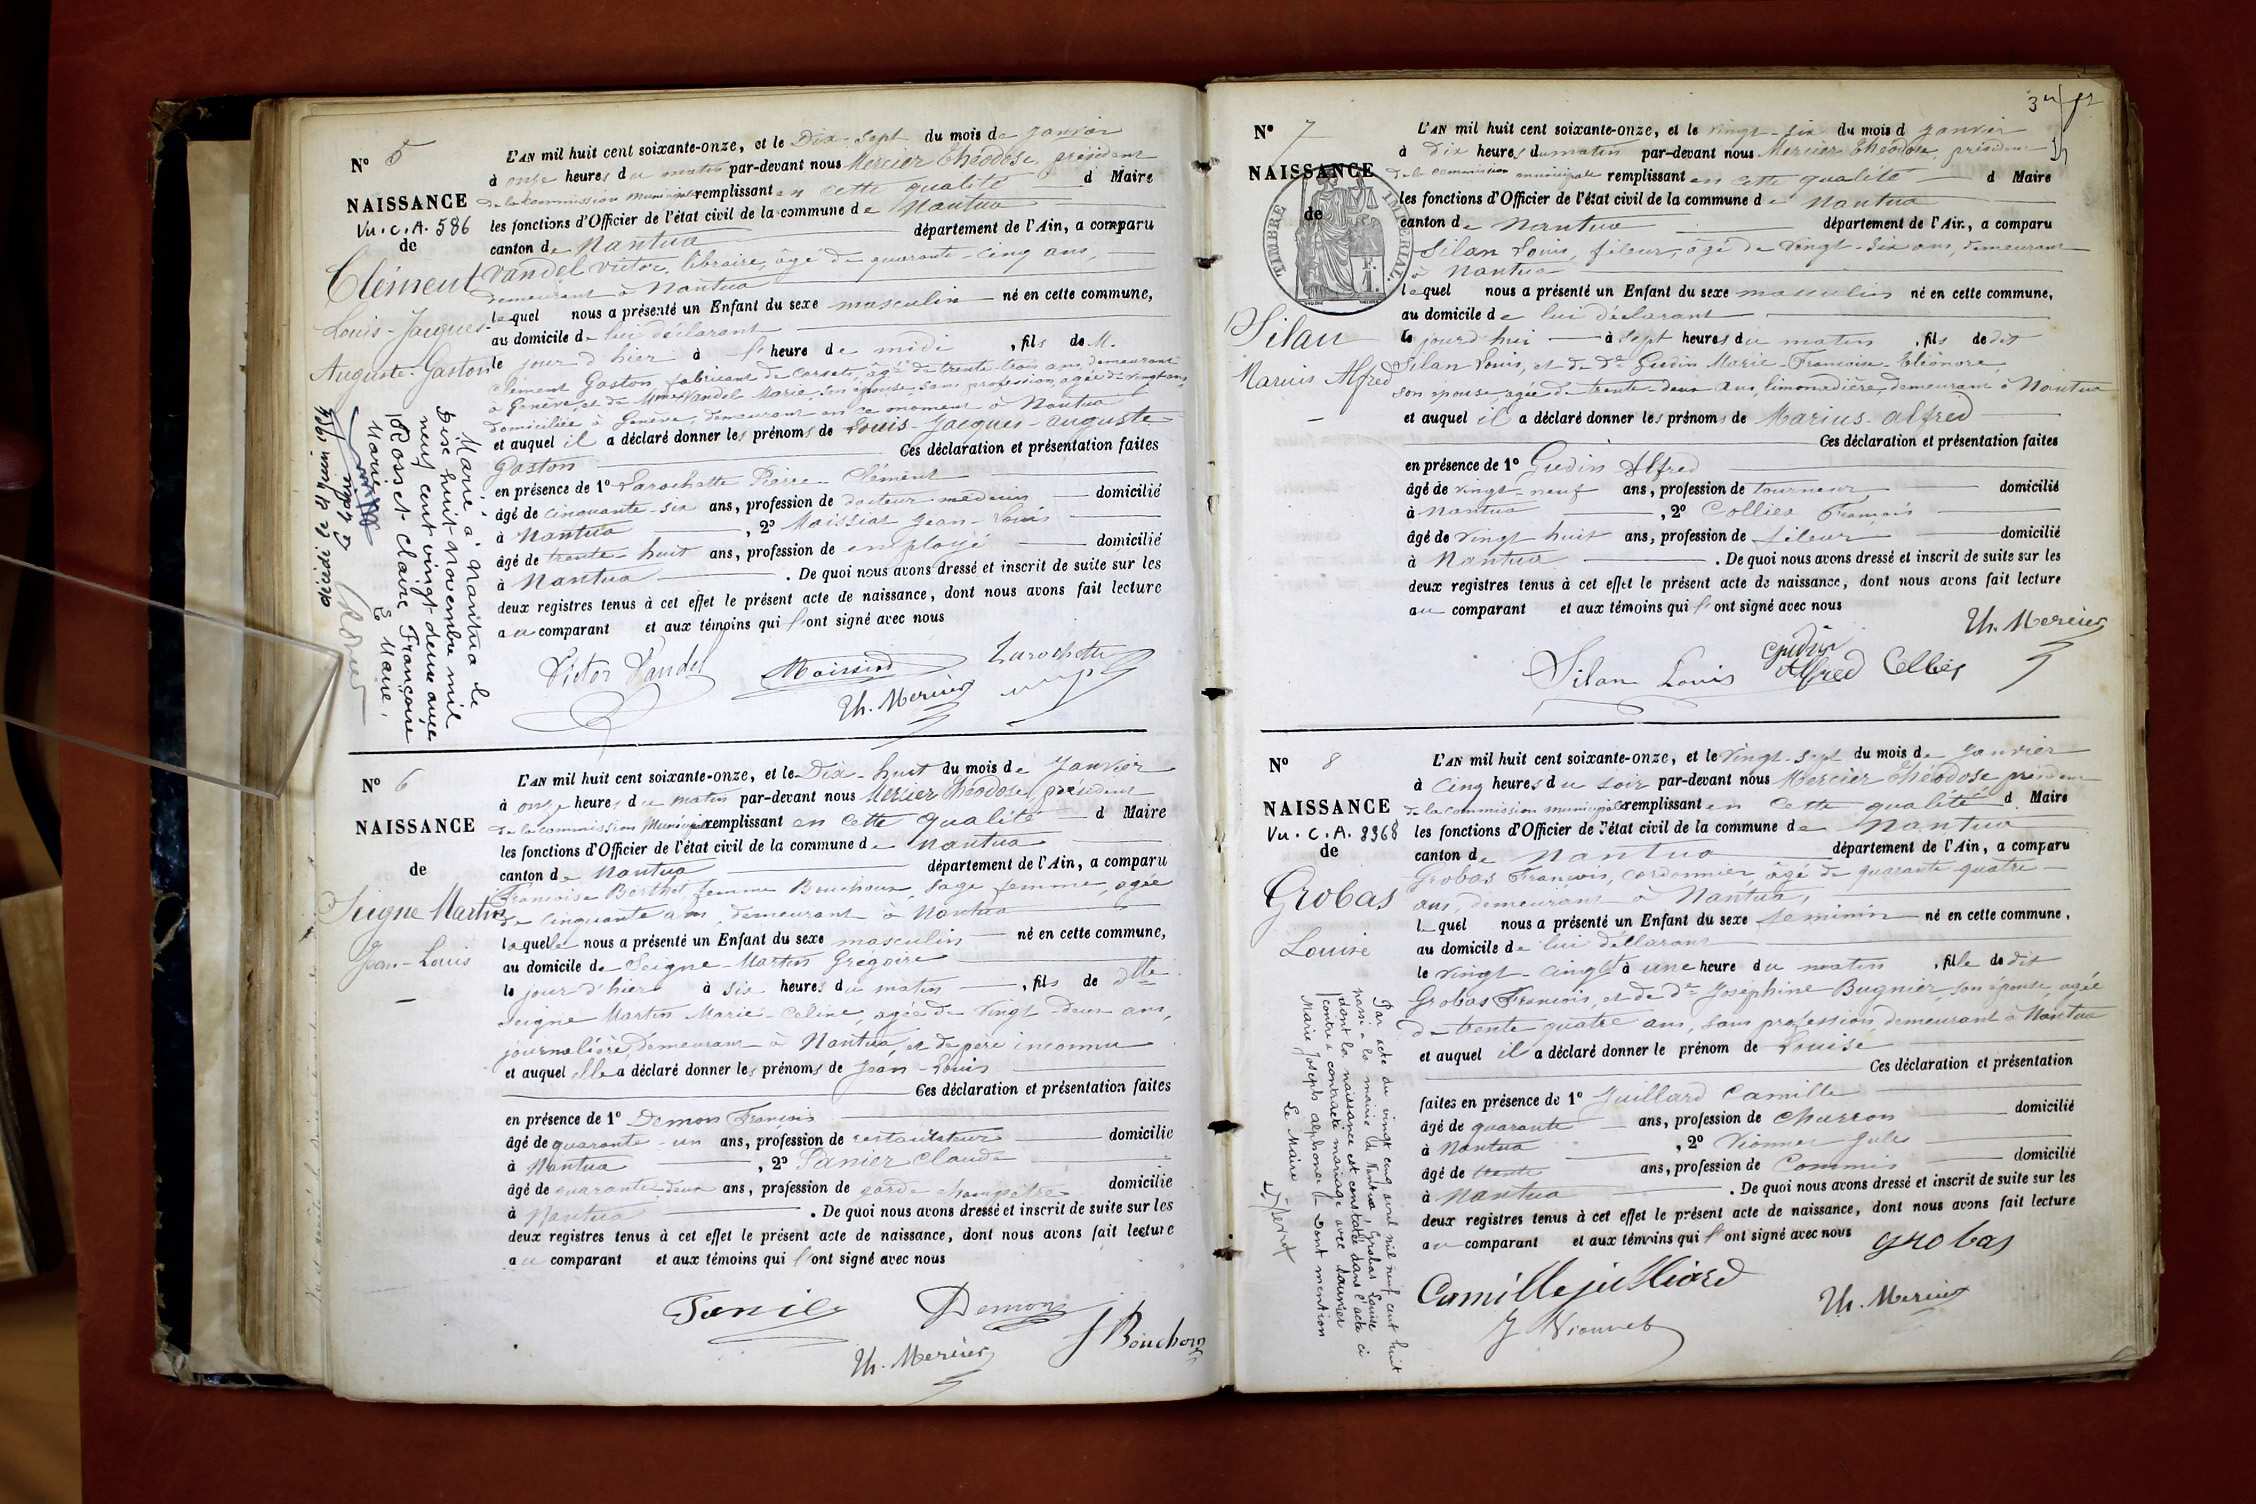 N° 5
NAISSANCE
Vu. C. A. 586
de
Clément
Louis-Jacques-
Auguste-Gaston
Marié à Nantua le
dix huit Novembre mil
neuf cent vingt-deux avec
Rosset Claire Françoise
Marie
Le Maire,
décédé le 21 Juin 1954
L'AN mil huit cent soixante-onze, et le Dix-Sept du mois de Janvier
à onze heures du matin par-devant nous Mercier Théodose, président
de la commission municipale remplissant en cette qualité d Maire
les fonctions d'Officier de l'état civil de la commune de Nantua
canton de Nantua département de l'Ain, a comparu
Vandel Victor, libraire, âgé de quarante-cinq ans,
demeurant à Nantua
lequel nous a présenté un Enfant du sexe masculin né en cette commune,
au domicile de lui déclarant
le jour d'hier à l' heure de midi , fils de M.
Clément Gaston, fabricant de corsets, âgé de trente-trois ans, demeurant
à Genève, et de Mme Vandel Marie, son épouse, sans profession, âgée de vingt ans
domiciliée à Genève, demeurant en ce moment à Nantua
et auquel il a déclaré donner les prénoms de Louis-Jacques-Auguste-
Gaston Ces déclaration et présentation faites
en présence de 1° Larochette Pierre Clément
âgé de cinquante-six ans, profession de docteur médecin domicilié
à Nantua , 2° Moissiat Jean-Louis
âgé de trente-huit ans, profession de employé domicilié
à Nantua . De quoi nous avons dressé et inscrit de suite sur les
deux registres tenus à cet effet le présent acte de naissance, dont nous avons fait lecture
au comparant et aux témoins qui l'ont signé avec nous
Victor Vandel Moissiat Larochette
Th. Mercier
N° 6
NAISSANCE
de
Seigne Martin
Jean-Louis
L'AN mil huit cent soixante-onze, et le Dix-huit du mois de Janvier
à onze heures du matin par-devant nous Mercier Théodose, président
de la commission Municipale remplissant en cette qualité d Maire
les fonctions d'Officier de l'état civil de la commune de Nantua
canton de Nantua département de l'Ain, a comparu
Françoise Berthet femme Bouchoux, sage femme, agée
de cinquante ans, demeurant à Nantua
laquelle nous a présenté un Enfant du sexe masculin né en cette commune,
au domicile de Seigne-Martin Grégoire
le jour d'hier à six heures du matin , fils de Dlle
Seigne Martin Marie-Céline, agée de vingt-deux ans,
journalière, demeurant à Nantua, et de père inconnu
et auquel elle a déclaré donner les prénoms de Jean-Louis
Ces déclaration et présentation faites
en présence de 1° Demons François
âgé de quarante-un ans, profession de restaurateur domicilié
à Nantua , 2° Panier Claude
âgé de quarante deux ans, profession de garde champêtre domicilié
à Nantua . De quoi nous avons dressé et inscrit de suite sur les
deux registres tenus à cet effet le présent acte de naissance, dont nous avons fait lecture
au comparant et aux témoins qui l'ont signé avec nous
Demons
Th. Mercier
N° 7
NAISSANCE
de
TIMBRE IMPÉRIAL
1 F.
Silan
Marius Alfred
L'AN mil huit cent soixante-onze, et le vingt-six du mois d Janvier
à dix heures du matin par-devant nous Mercier Théodose, président
de la commission municipale remplissant en cette qualité d Maire
les fonctions d'Officier de l'état civil de la commune de Nantua
canton de Nantua département de l'Ain, a comparu
Silan Louis, fileur, âgé de vingt-six ans, demeurant
à Nantua
lequel nous a présenté un Enfant du sexe masculin né en cette commune,
au domicile de lui déclarant
le jourd'hui à sept heures du matin , fils de dit
Silan Louis, et de De Gudin Marie-Françoise-Eléonore,
son épouse, agée de trente-deux ans, limonadière, demeurant à Nantua
et auquel il a déclaré donner les prénoms de Marius-Alfred
Ces déclaration et présentation faites
en présence de 1° Gudin Alfred
âgé de vingt-neuf ans, profession de tourneur domicilié
à Nantua , 2° Collier François
âgé de vingt huit ans, profession de fileur domicilié
à Nantua . De quoi nous avons dressé et inscrit de suite sur les
deux registres tenus à cet effet le présent acte de naissance, dont nous avons fait lecture
au comparant et aux témoins qui l'ont signé avec nous
Th. Mercier
Silan Louis Gudin Alfred
N° 8
NAISSANCE
Vu. C. A. 8368
de
Grobas
Louise
Par acte du vingt cinq avril mil neuf cent huit
passé à la mairie de Nantua, Grobas Louise
dont la naissance est constatée dans l'acte ci
contre a contracté mariage avec
Marie Joseph Alphonse Dont mention
Le Maire
L'AN mil huit cent soixante-onze, et le vingt-sept du mois de Janvier
à cinq heures du soir par-devant nous Mercier Théodose président
de la commission municipale remplissant en cette qualité d Maire
les fonctions d'Officier de l'état civil de la commune de Nantua
canton de Nantua département de l'Ain, a comparu
Grobas François, cordonnier, âgé de quarante quatre
ans, demeurant à Nantua,
lequel nous a présenté un Enfant du sexe féminin né en cette commune,
au domicile de lui déclarant
le vingt-cinq à une heure du matin , fille de dit
Grobas François, et de De Joséphine Bugnier, son épouse, agée
de trente quatre ans, sans profession, demeurant à Nantua
et auquel il a déclaré donner le prénom de Louise
Ces déclaration et présentation
faites en présence de 1° Juillard Camille
âgé de quarante ans, profession de charron domicilié
à Nantua , 2° Vionnet Jules
âgé de trente ans, profession de Commis domicilié
à Nantua . De quoi nous avons dressé et inscrit de suite sur les
deux registres tenus à cet effet le présent acte de naissance, dont nous avons fait lecture
au comparant et aux témoins qui l'ont signé avec nous
Grobas
Camille juilliard
Th. Mercier
J Vionnet